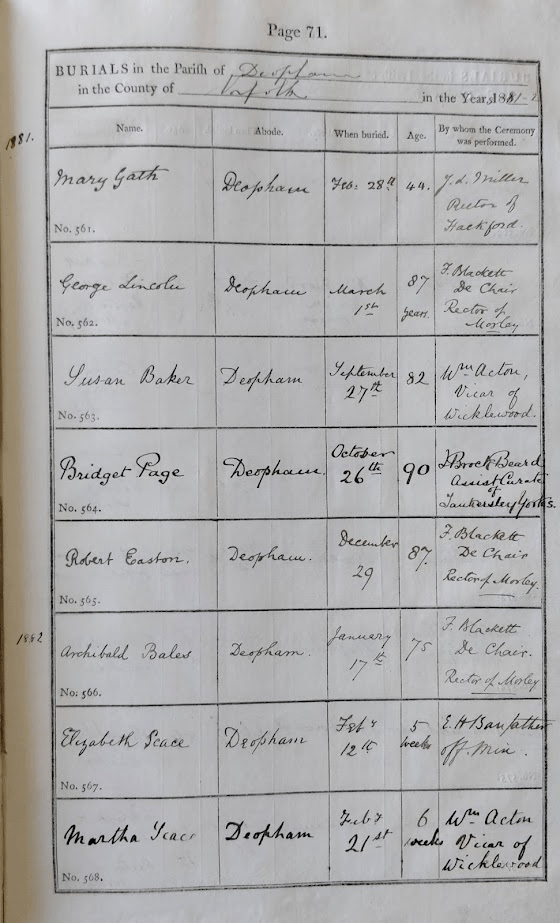 Page 71.
BURIALS in the Parish of Deopham
in the County of Norfolk in the Years 1881-2
Name. Abode. When buried. Age. By whom the Ceremony was performed.
1881.
Mary Gath Deopham Feb: 28th 44. J. d. Miller
Rector of
Hackford.
No. 561.
George Lincoln Deopham March 87 F. Blackett
De Chair
1st years. Rector of
Morley
No. 562.
Susan Baker Deopham September 82 Wm Acton,
27th Vicar of
Wicklewood.
No. 563.
Bridget Page Deopham. October 90 J Brock Beard
26th Assist Curate
of
Tankersley Yorks.
No. 564.
Robert Easton. Deopham. December 87. F. Blackett
29 De Chair
Rector of Morley.
No. 565.
1882
Archibald Bales Deopham. January 75 F. Blackett
17th De Chair.
Rector of Morley
No. 566.
Elizabeth Scace Deopham Feby 5 E. H
12th weeks off. Min.
No. 567.
Martha Scace Deopham Feby 6 Wm Acton
21st weeks Vicar of
Wicklewood
No. 568.